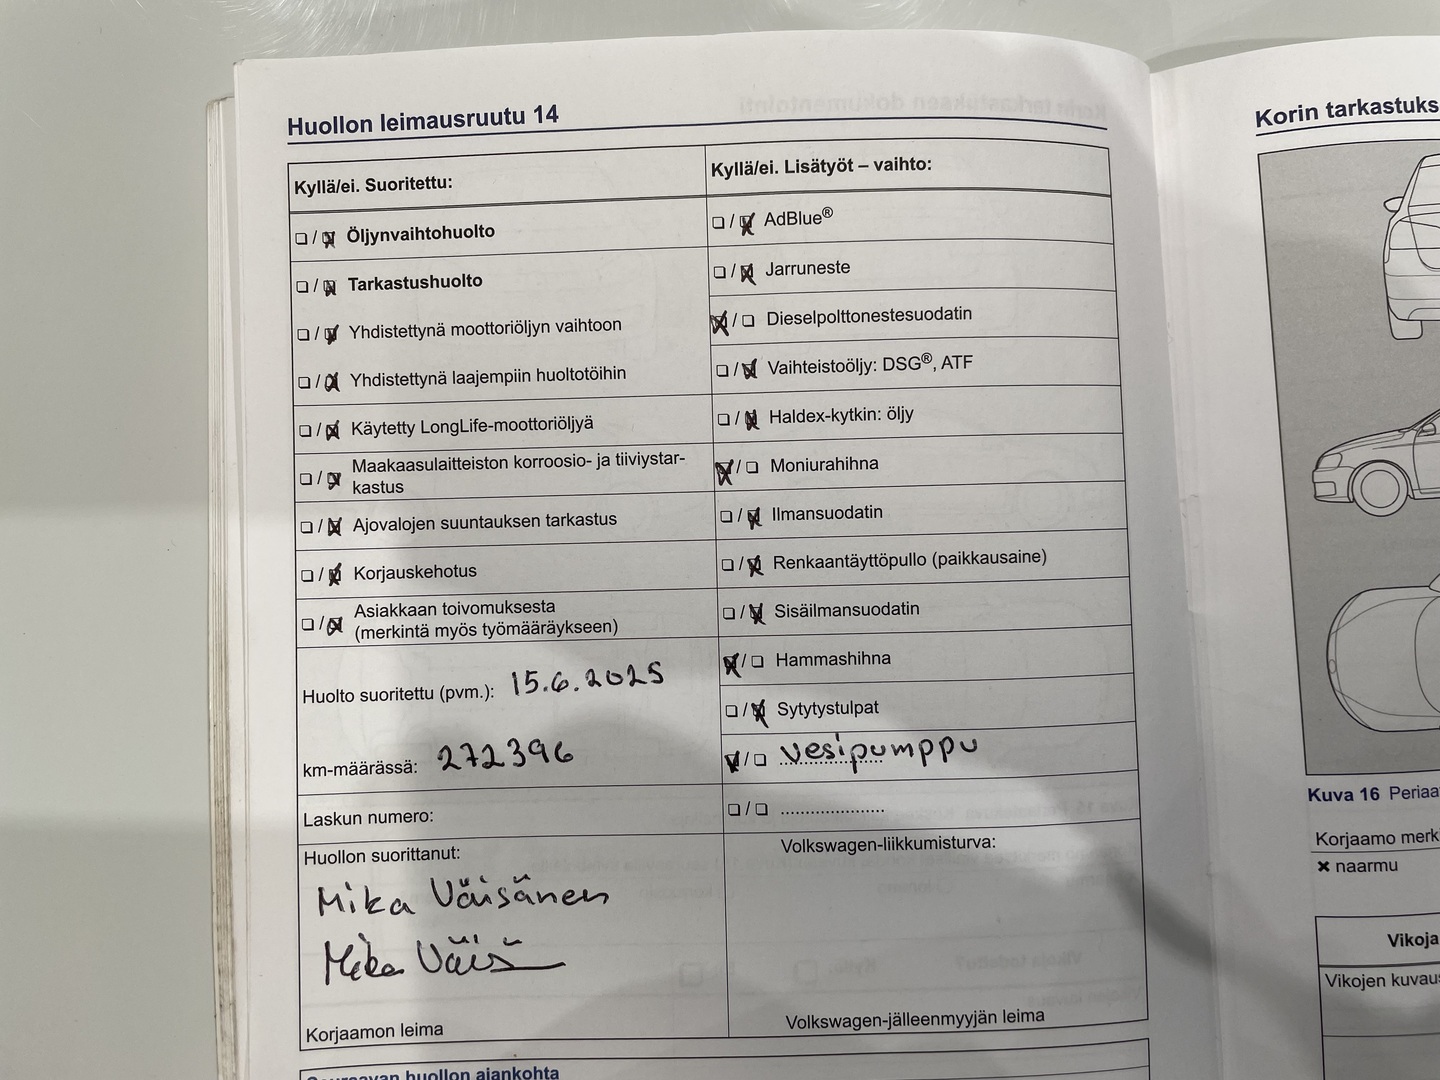 Huollon leimausruutu 14
Kyllä/ei. Suoritettu:
☐ / ☒ Öljynvaihtohuolto
☐ / ☒ Tarkastushuolto
☐ / ☒ Yhdistettynä moottoriöljyn vaihtoon
☐ / ☒ Yhdistettynä laajempiin huoltotöihin
☐ / ☒ Käytetty LongLife-moottoriöljyä
☐ / ☒ Maakaasulaitteiston korroosio- ja tiiviystar-
kastus
☐ / ☒ Ajovalojen suuntauksen tarkastus
☐ / ☒ Korjauskehotus
☐ / ☒ Asiakkaan toivomuksesta
(merkintä myös työmääräykseen)
Huolto suoritettu (pvm.): 15.6.2025
km-määrässä: 272396
Laskun numero:
Huollon suorittanut:
Mika Väisänen
Mika Väis
Korjaamon leima
Kyllä/ei. Lisätyöt – vaihto:
☐ / ☒ AdBlue®
☐ / ☒ Jarruneste
☒ / ☐ Dieselpolttonestesuodatin
☐ / ☒ Vaihteistoöljy: DSG®, ATF
☐ / ☒ Haldex-kytkin: öljy
☒ / ☐ Moniurahihna
☐ / ☒ Ilmansuodatin
☐ / ☒ Renkaantäyttöpullo (paikkausaine)
☐ / ☒ Sisäilmansuodatin
☒ / ☐ Hammashihna
☐ / ☒ Sytytystulpat
☒ / ☐ vesipumppu
☐ / ☐ ....................
Volkswagen-liikkumisturva:
Volkswagen-jälleenmyyjän leima
huollon ajankohta
Korin tarkastuks
Kuva 16 Periaa
Korjaamo merk
✖ naarmu
Vikoja
Vikojen kuvau